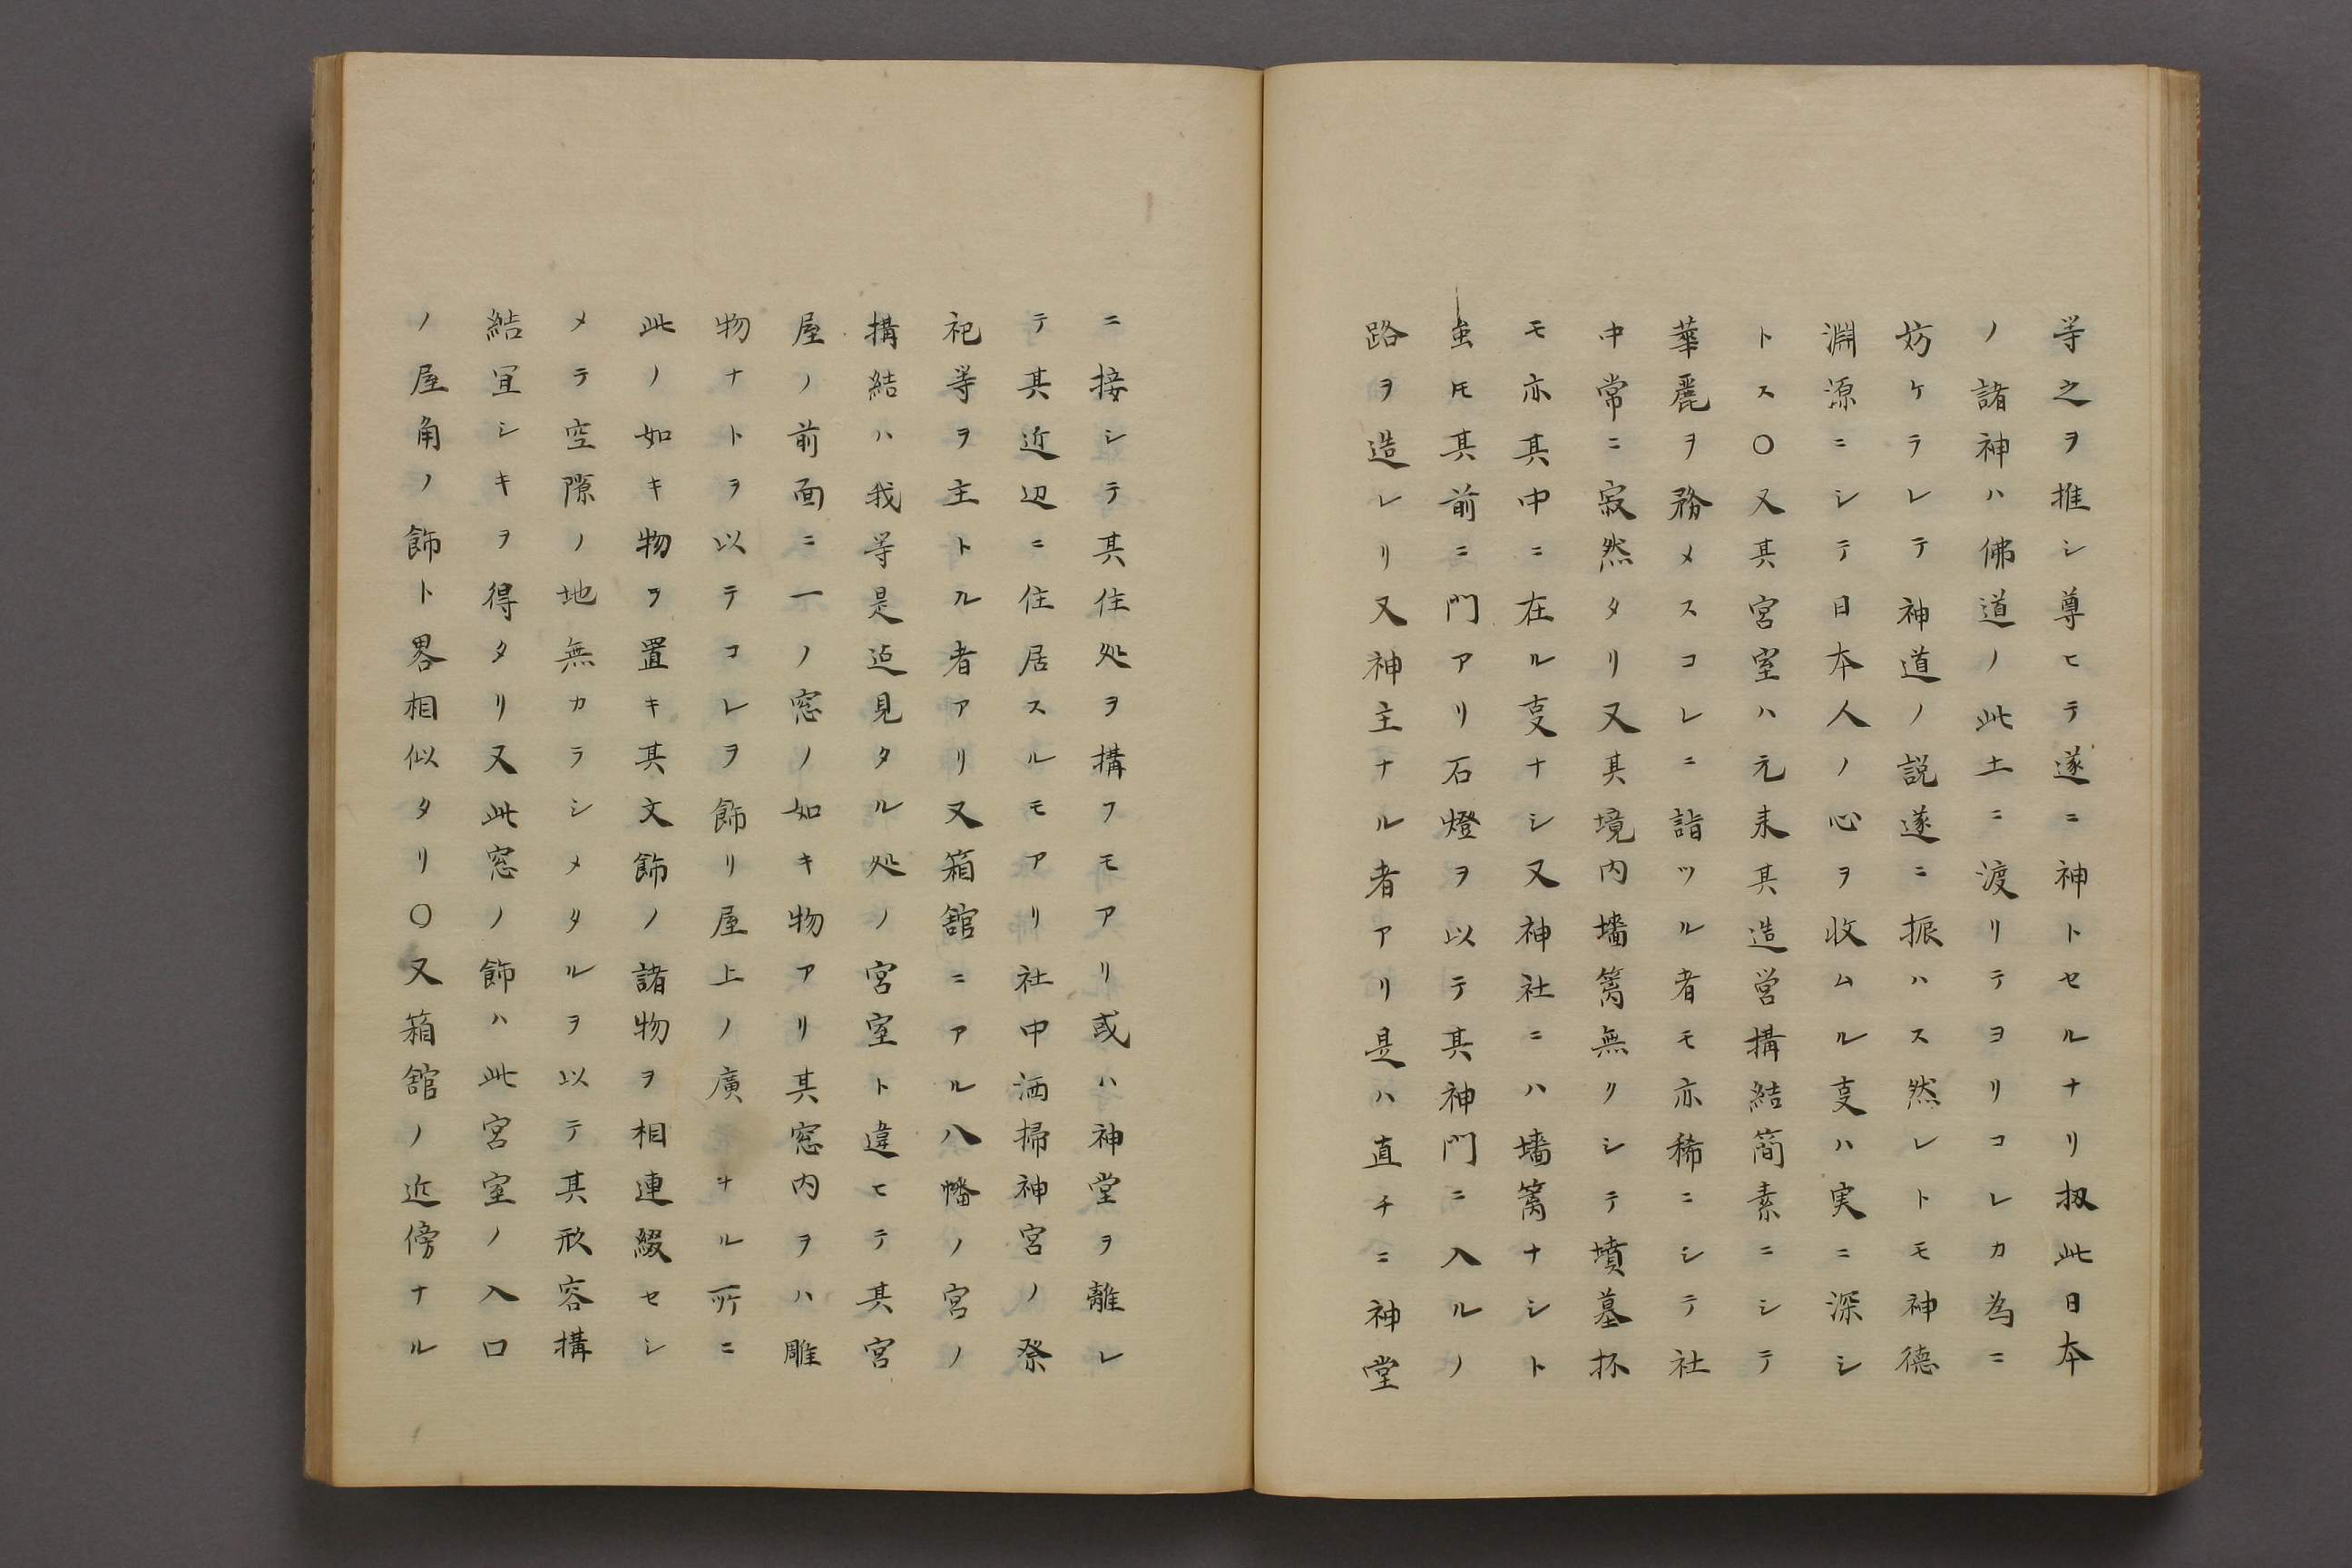 等之ヲ推シ尊ヒテ遂ニ神トセルナリ扨此日本
ノ諸神ハ佛道ノ此土ニ渡リテヨリコレカ為ニ
妨ケラレテ神道ノ説遂ニ振ハス然レトモ神徳
淵源ニシテ日本人ノ心ヲ收ムル叓ハ実ニ深シ
トス〇又其宮室ハ元来其造営搆結簡素ニシテ
華麗ヲ務メスコレニ詣ツル者モ亦稀ニシテ社
中常ニ寂然タリ又其境内墻籬無リシテ墳墓抔
モ亦其中ニ在ル叓ナシ又神社ニハ墻籬ナシト
虽𪜈其前ニ門アリ石燈ヲ以テ其神門ニ入ルノ
路ヲ造レリ又神主ナル者アリ是ハ直チニ神堂
ニ接シテ其住処ヲ搆フモアリ或ハ神堂ヲ離レ
テ其近辺ニ住居スルモアリ社中洒掃神宮ノ祭
祀等ヲ主トル者アリ又箱舘ニアル八幡ノ宮ノ
搆結ハ我等是迠見タル処ノ宮室ト違ヒテ其宮
屋ノ前面ニ一ノ窓ノ如キ物アリ其窓内ヲハ雕
物ナトヲ以テコレヲ飾リ屋上ノ廣キル所ニ
此ノ如キ物ヲ置キ其文飾ノ諸物ヲ相連綴セシ
メテ空隙ノ地無カラシメタルヲ以テ其形容搆
結宜シキヲ得タリ又此窓ノ飾ハ此宮室ノ入口
ノ屋角ノ飾ト畧相似タリ〇又箱舘ノ近傍ナル